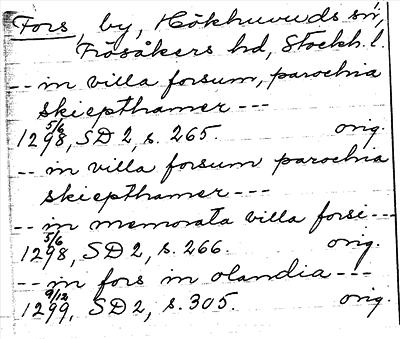 Fors, by, Hökhuvuds sn,
Frösåkers hd, Stockh. l.
-- in villa forsum, parochia
skiepthamer ---
5/6
1298, SD 2, s. 265. orig.
-- in villa forsum parochia
skiepthamer ---
-- in memorata villa forsi ---
5/6
1298, SD 2, s. 266. orig.
-- in fors in olandia ---
9/12
1299, SD 2, s. 305. orig.